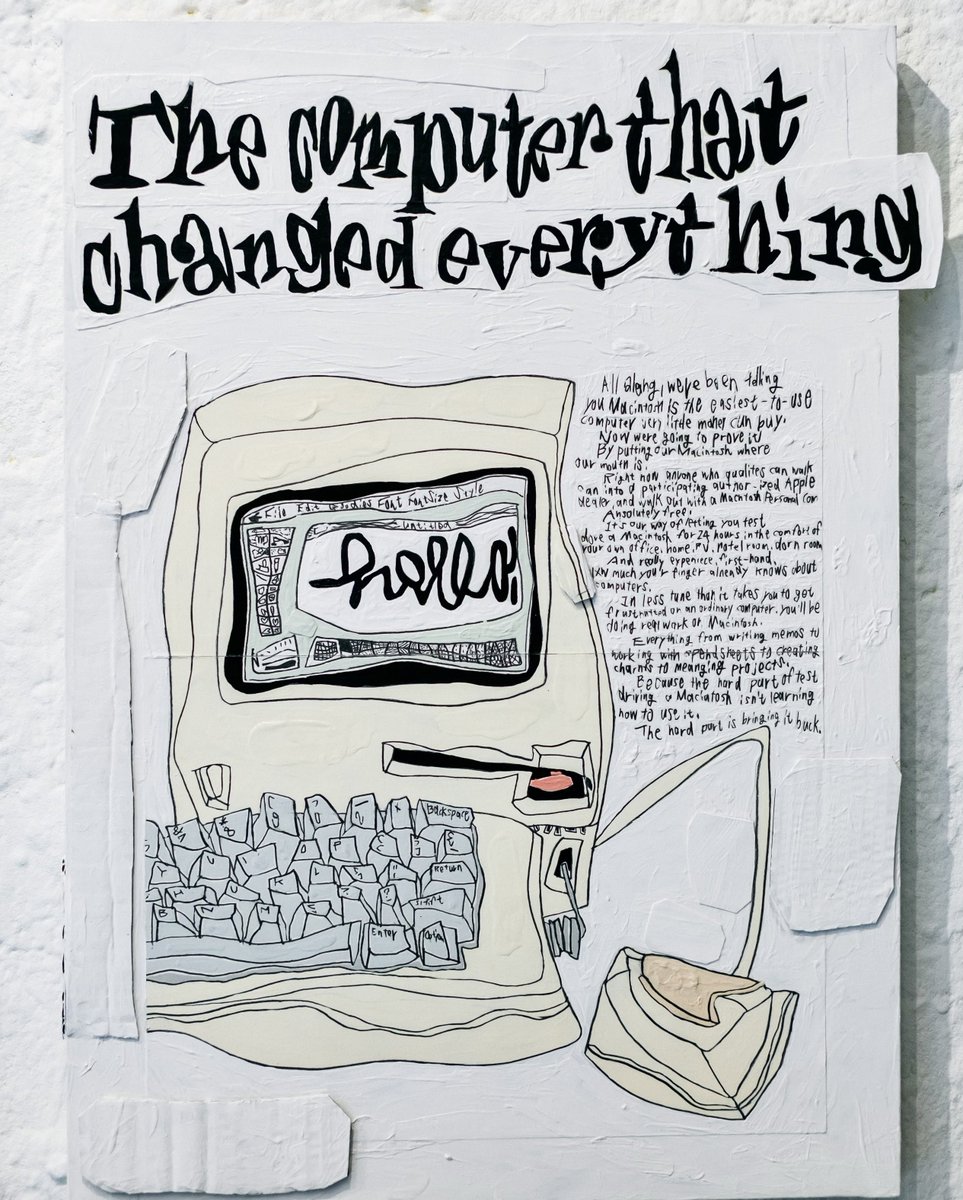 The computer that
changed everything
File Edit Goodies Font FontSize Style
untitled
hello!
All along, we've been telling
you Macintosh is the easiest-to-use
computer very little money can buy.
Now were going to prove it
By putting our Macintosh where
our mouth is.
Right now anyone who qualites can walk
can into a participating author-ized Apple
dealer, and walk out with a Macintosh Personal Cor
Absolutely free!
It's our way of letting you test
drive a Macintosh for 24 hours in the comfort of
your own office, home, RV, hotel room, dorn room
And really experiece, first-hand,
how much your finger already knows about
computers.
In less tune than it takes you to get
frustrated on an ordinary computer, you'll be
doing real work or Macintosh.
Everything from writing memos to
working with spendsheets to creating
charms to meanging projects.
Because the hard part of test
driving a Maciatosh isn't learning
how to use it.
The hard part is bringing it buck.
Backspace
Return
Shift
Enter Option